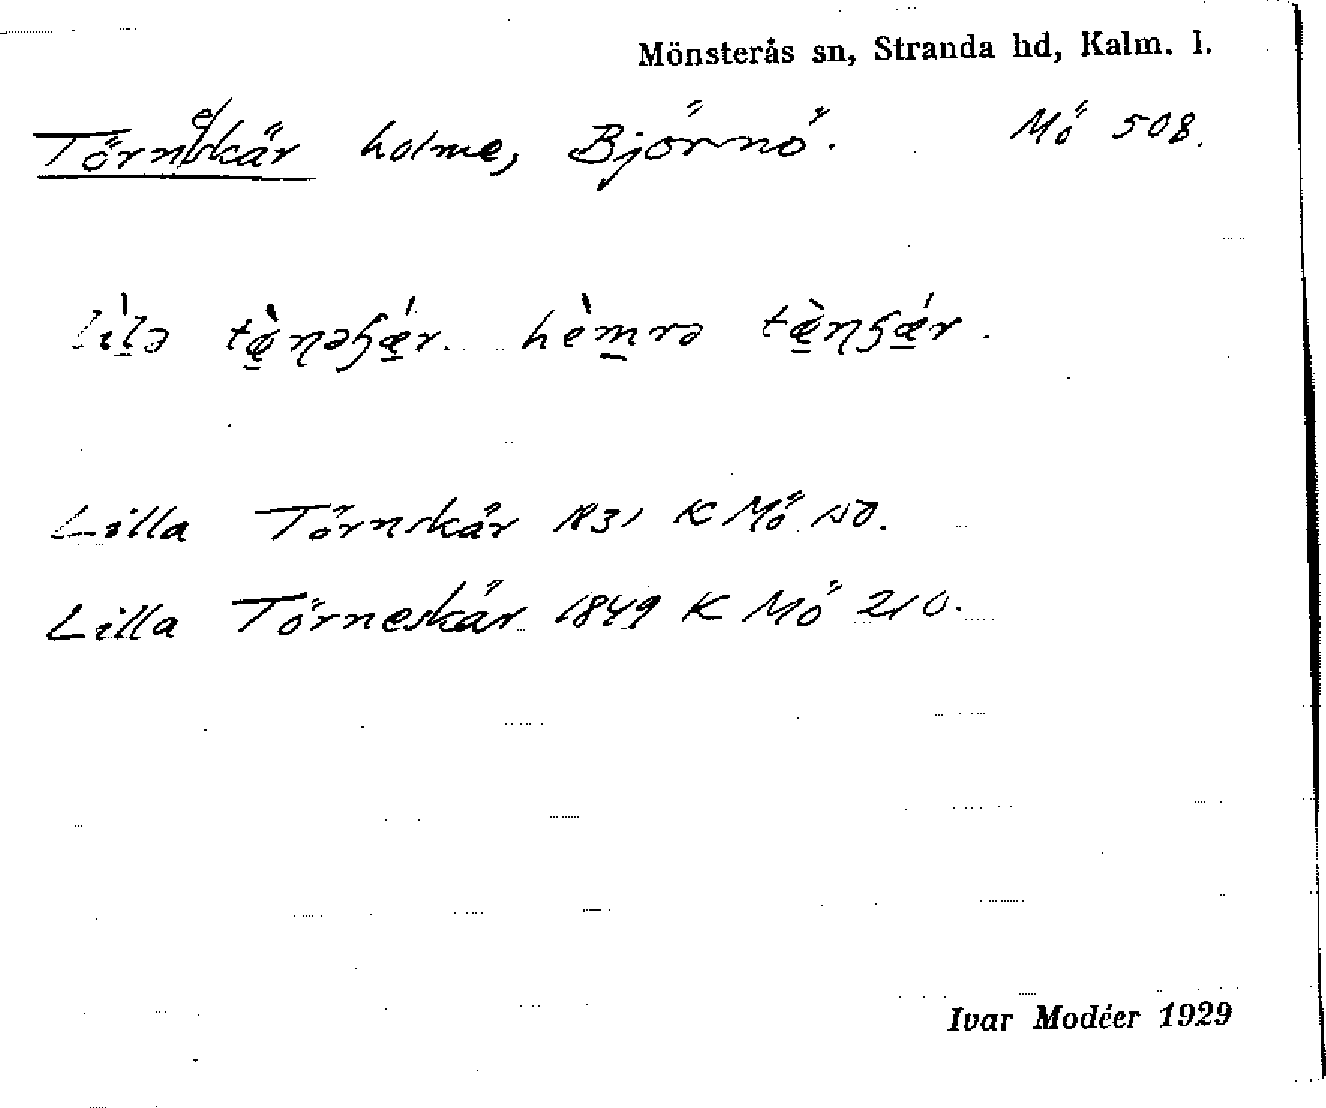 Mönsterås sn, Stranda hd, Kalm. l.
Törneskär holme, Björnö. Mö 508.
lìlə tæ̀ɳəɧǽr. hèmrə tæ̀ɳɧǽr.
Lilla Törnskär 1831 K Mö
Lilla Törneskär 1849 K Mö 210.
Ivar Modéer 1929